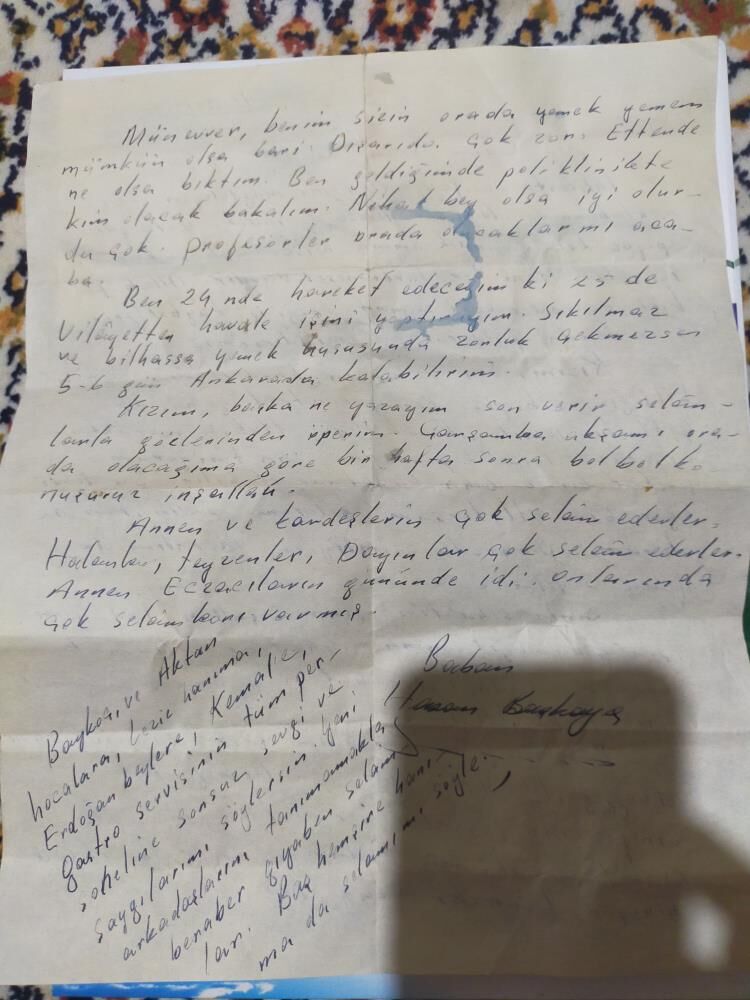 Münevver, benim sizin orada yemek yemem
mümkün olsa bari. Dışarıda çok zor. Ettende
ne olsa bıktım. Ben geldiğimde poliklinikte
kim olacak bakalım. Nihat bey olsa iyi olur-
du çok. Profesörler orada olacaklar mı aca-
ba.
Ben 24 nde hareket edeceğim ki 25 de
Vilâyetten havale işini yaptırayım. Sıkılmaz
ve bilhassa yemek hususunda zorluk çekmezsen
5-6 gün Ankarada kalabilirim.
Kızım, başka ne yazayım son verir selâm-
larla gözlerinden öperim. Çarşamba akşamı ora-
da olacağıma göre bir hafta sonra bol bol ko-
nuşuruz inşallah.
Annen ve kardeşlerin çok selâm ederler.
Halanlar, teyzenler, Dayınlar çok selâm ederler.
Annen Eczacıların gününde idi. Onlarında
çok selâmları varmış.
Baban
Hasan
Baykal, ve Aktan
hocalara, hanıma,
Erdoğan beylere, Kemal'e,
gastro servisinin tüm per-
soneline sonsuz sevgi ve
saygılarımı söylersin. Yeni
arkadaşlarını tanımamakla
beraber gıyaben selâm
lar. Baş hemşire hanı-
ma da selâmımı söyle.